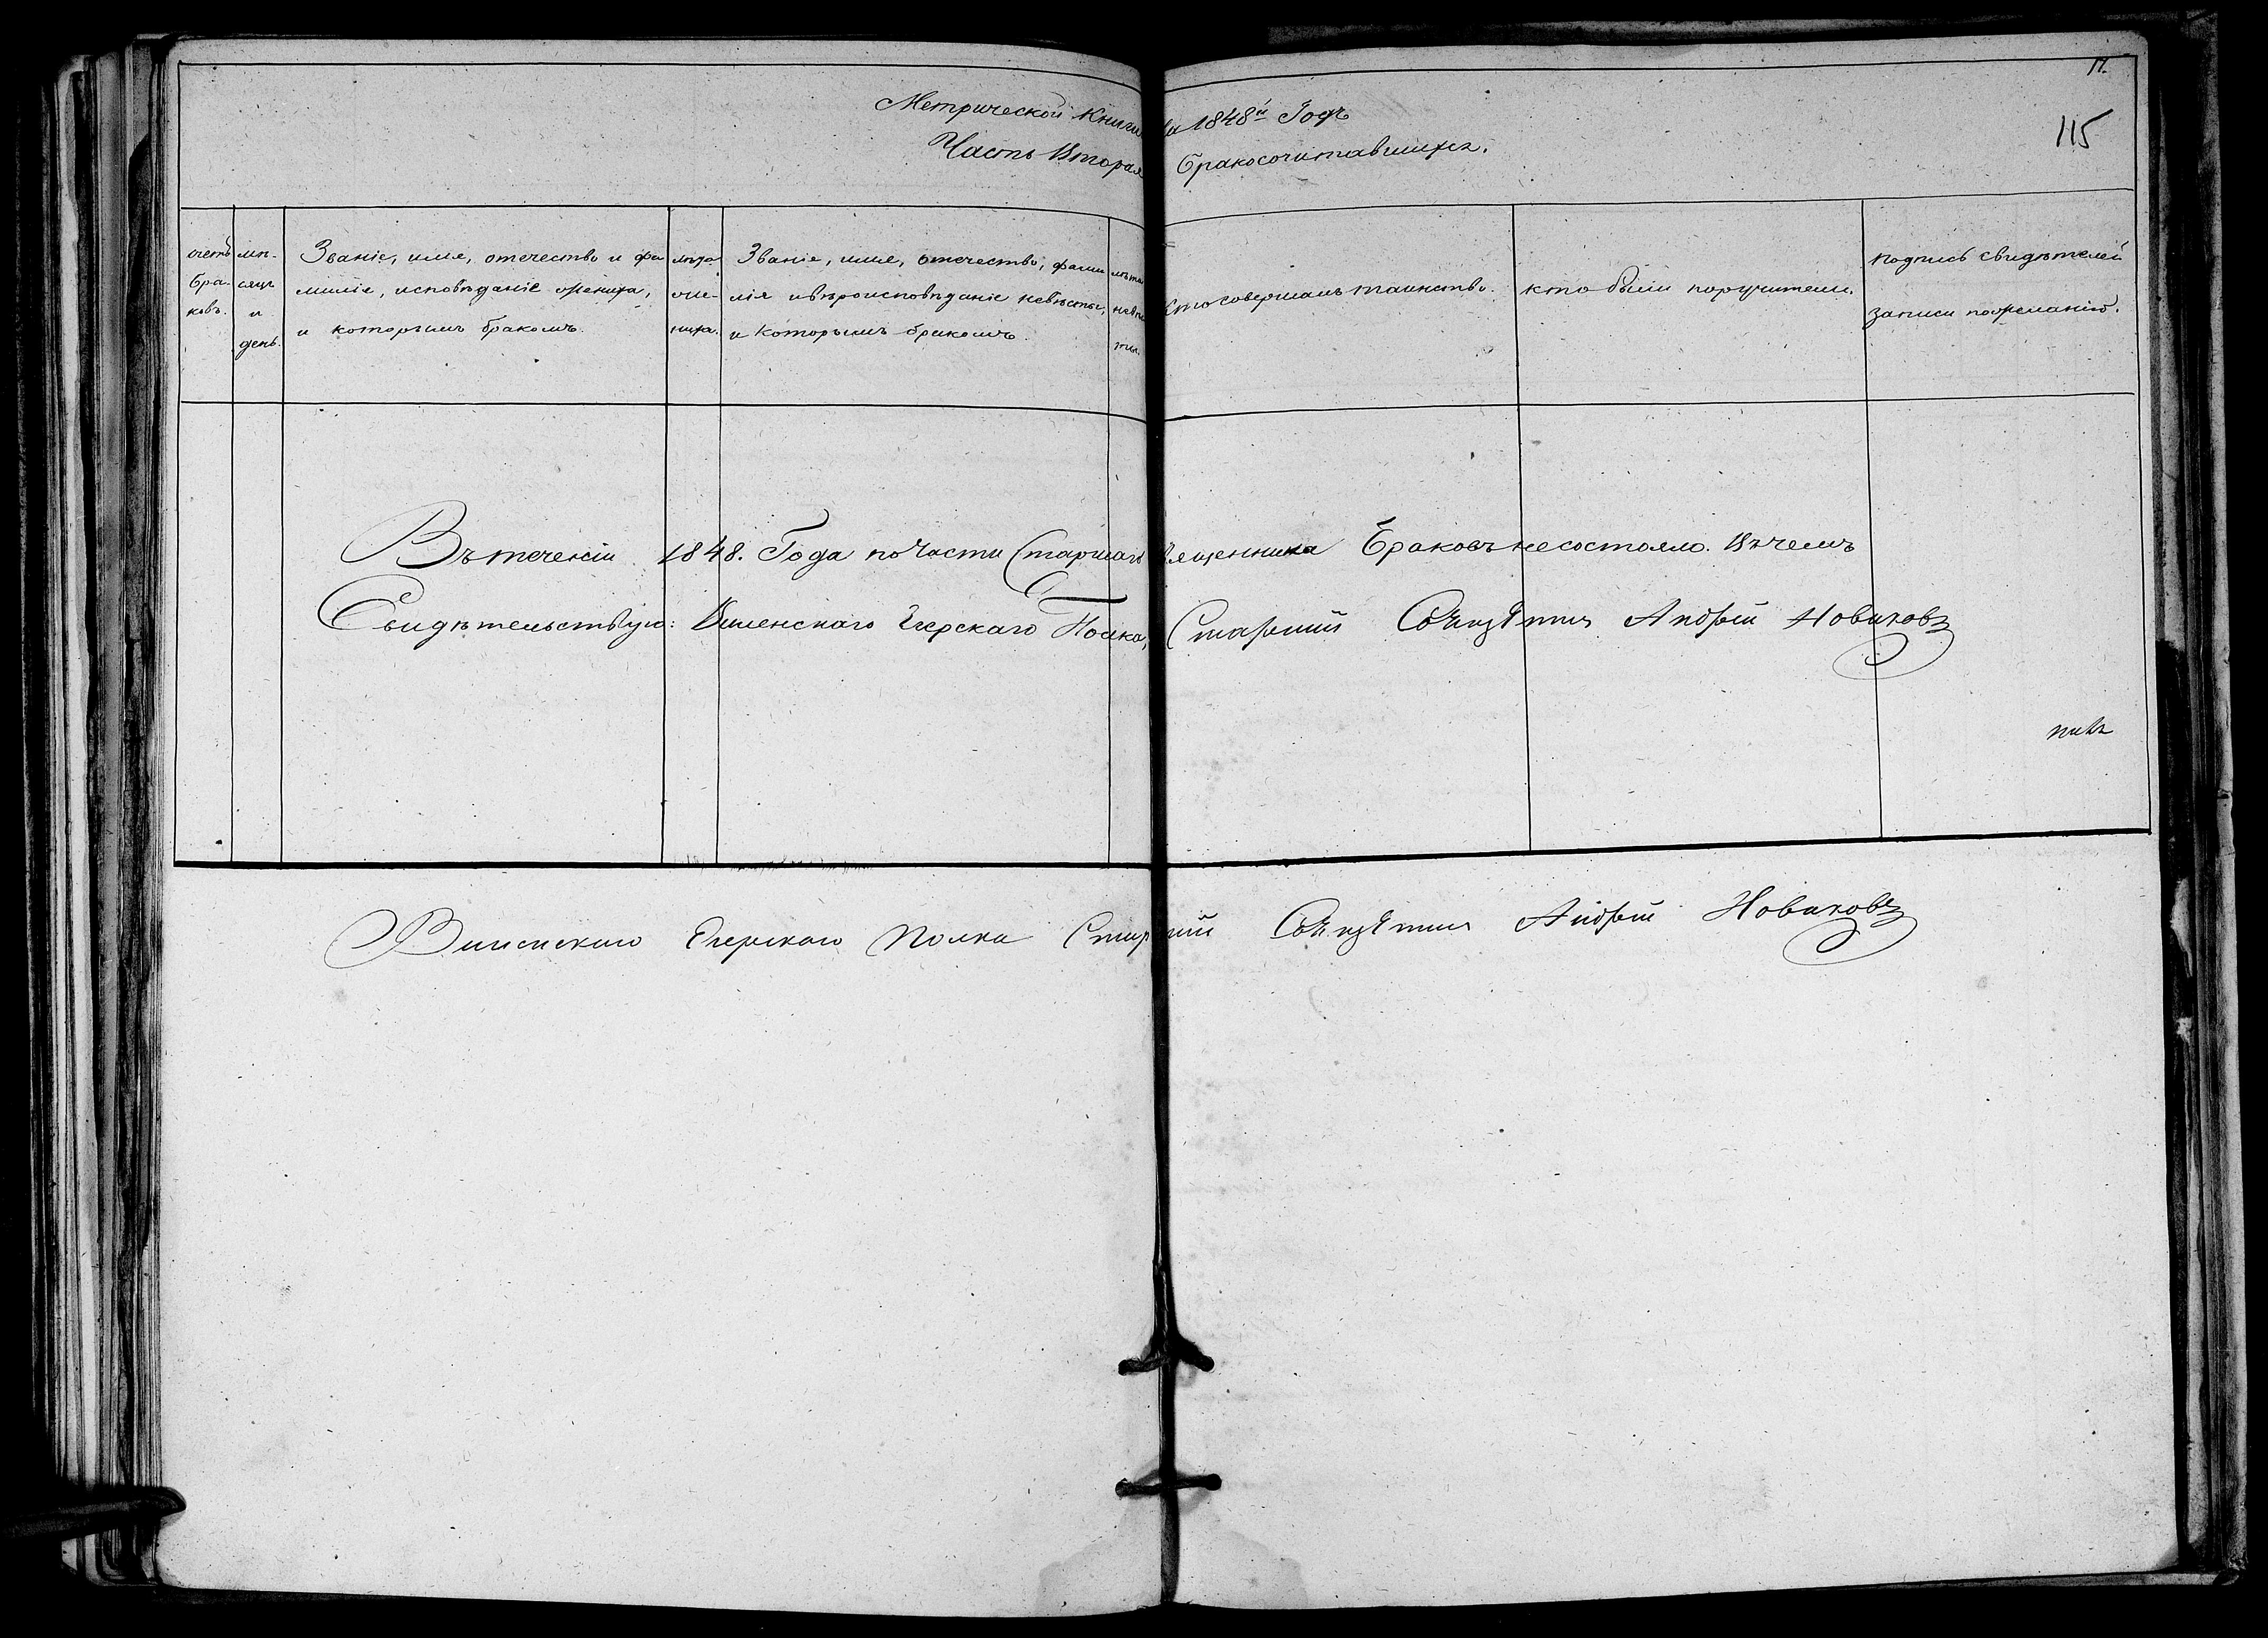 11.
115
Метрической Книги на 1848й Годъ
Часть Вторая Бракосочитавшихся.
счетъ бра- ковъ.
мѣ- сяцъ и день.
Званіе, имя, отечество и фа
миліе, исповѣданіе жениха,
и которымъ бракомъ.
лѣта
же-
ниха.
Званіе, имя, отечество, фами
лія и вѣроисповѣданіе невѣсты,
и которымъ бракомъ.
лѣта
невѣс
ты.
Кто совершалъ таинство.
кто были поручители.
подпись свидѣтелей
записи по желанію.
Въ теченіи 1848. Года по части Старшаго Священника Браковъ не состояло. Въ чемъ
Свидѣтельствую: Виленскаго Егерскаго Полка, Старший Священникъ Андрей Новиковъ
Виленскаго Егерскаго Полка Старший Священникъ Андрей Новиковъ